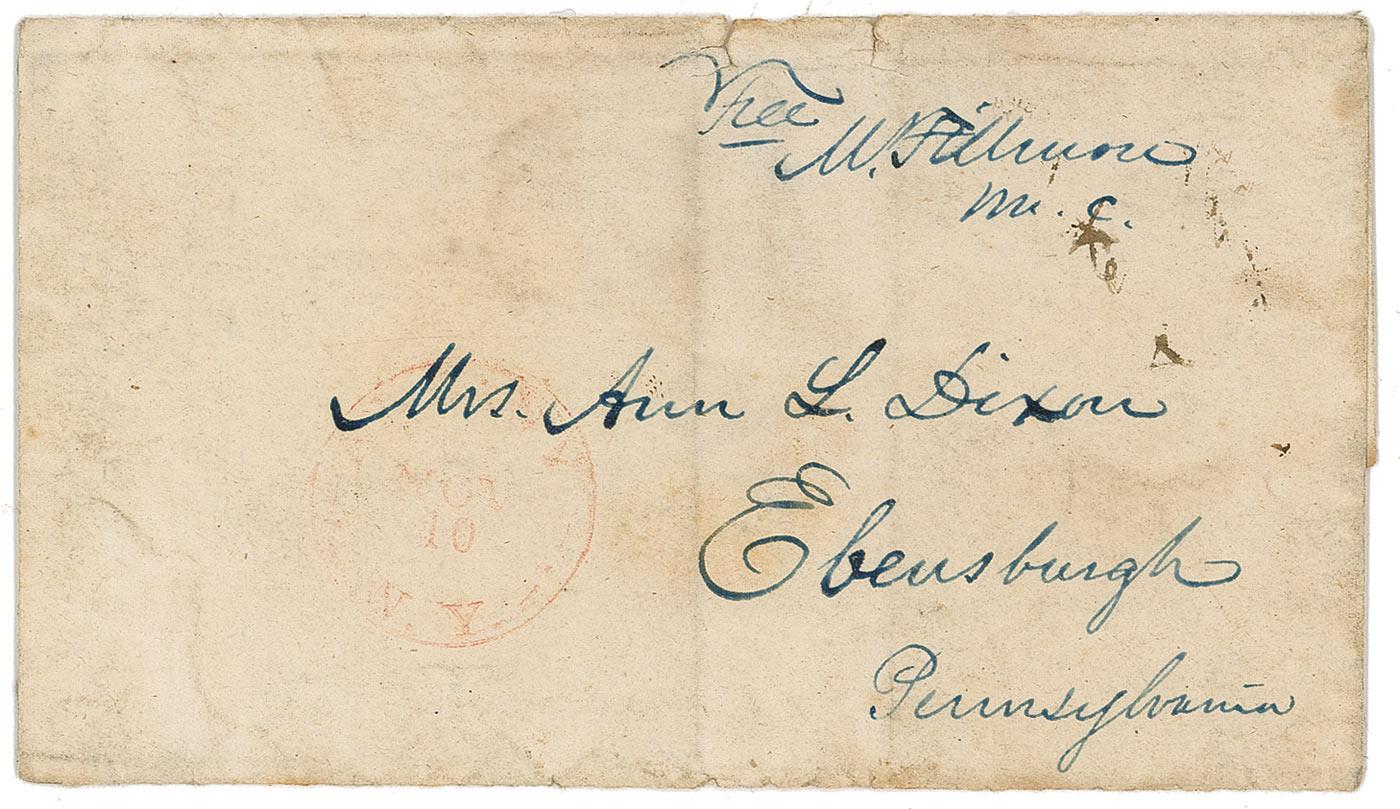 Free
M. Fillmore
M. C.
Mrs. Ann L. Dixon
NOV
10
N. Y.
Ebensburgh
Pennsylvania